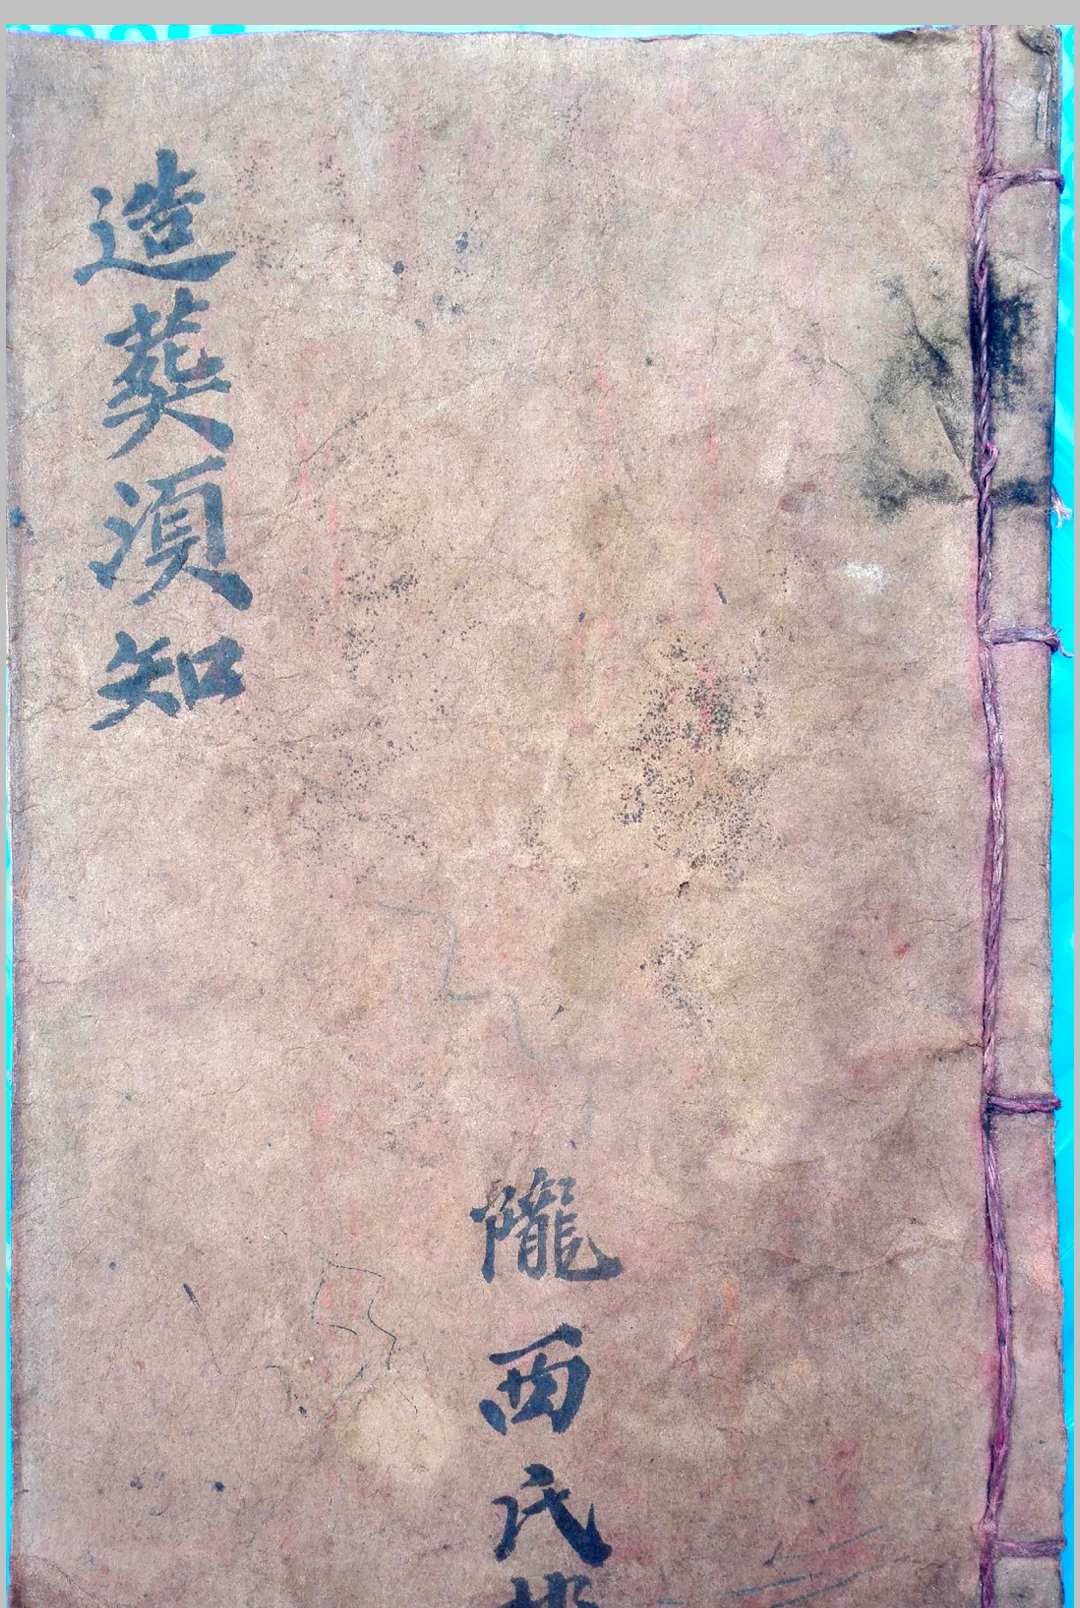 造葬須知
隴西氏